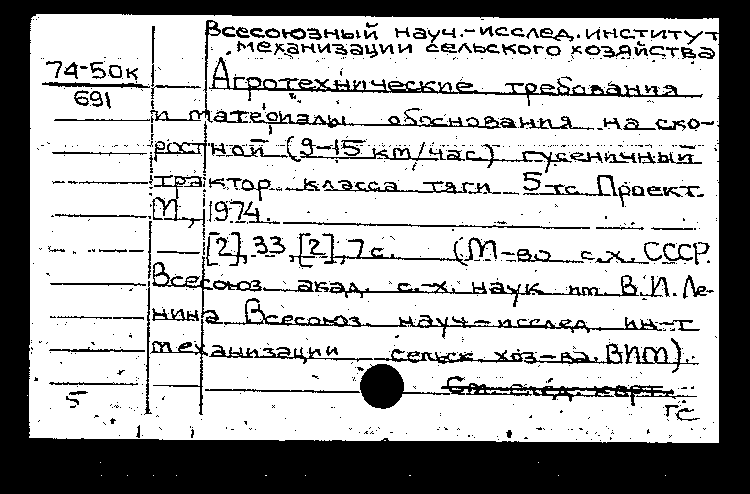 Всесоюзный науч.-исслед. институт
механизации сельского хозяйства
74-50к
691
Агротехнические требования
и материалы обоснования на ско-
ростной (9-15 км/час) гусеничный
трактор класса тяги 5тс. Проект.
М., 1974.
[2], 33, [2], 7 с. (М-во с.х. СССР.
Всесоюз. акад. с.-х. наук им. В.И. Ле-
нина Всесоюз. науч-исслед. ин-т
механизации сельск. хоз-ва. ВИМ).
См. след. карт.
5
ГС